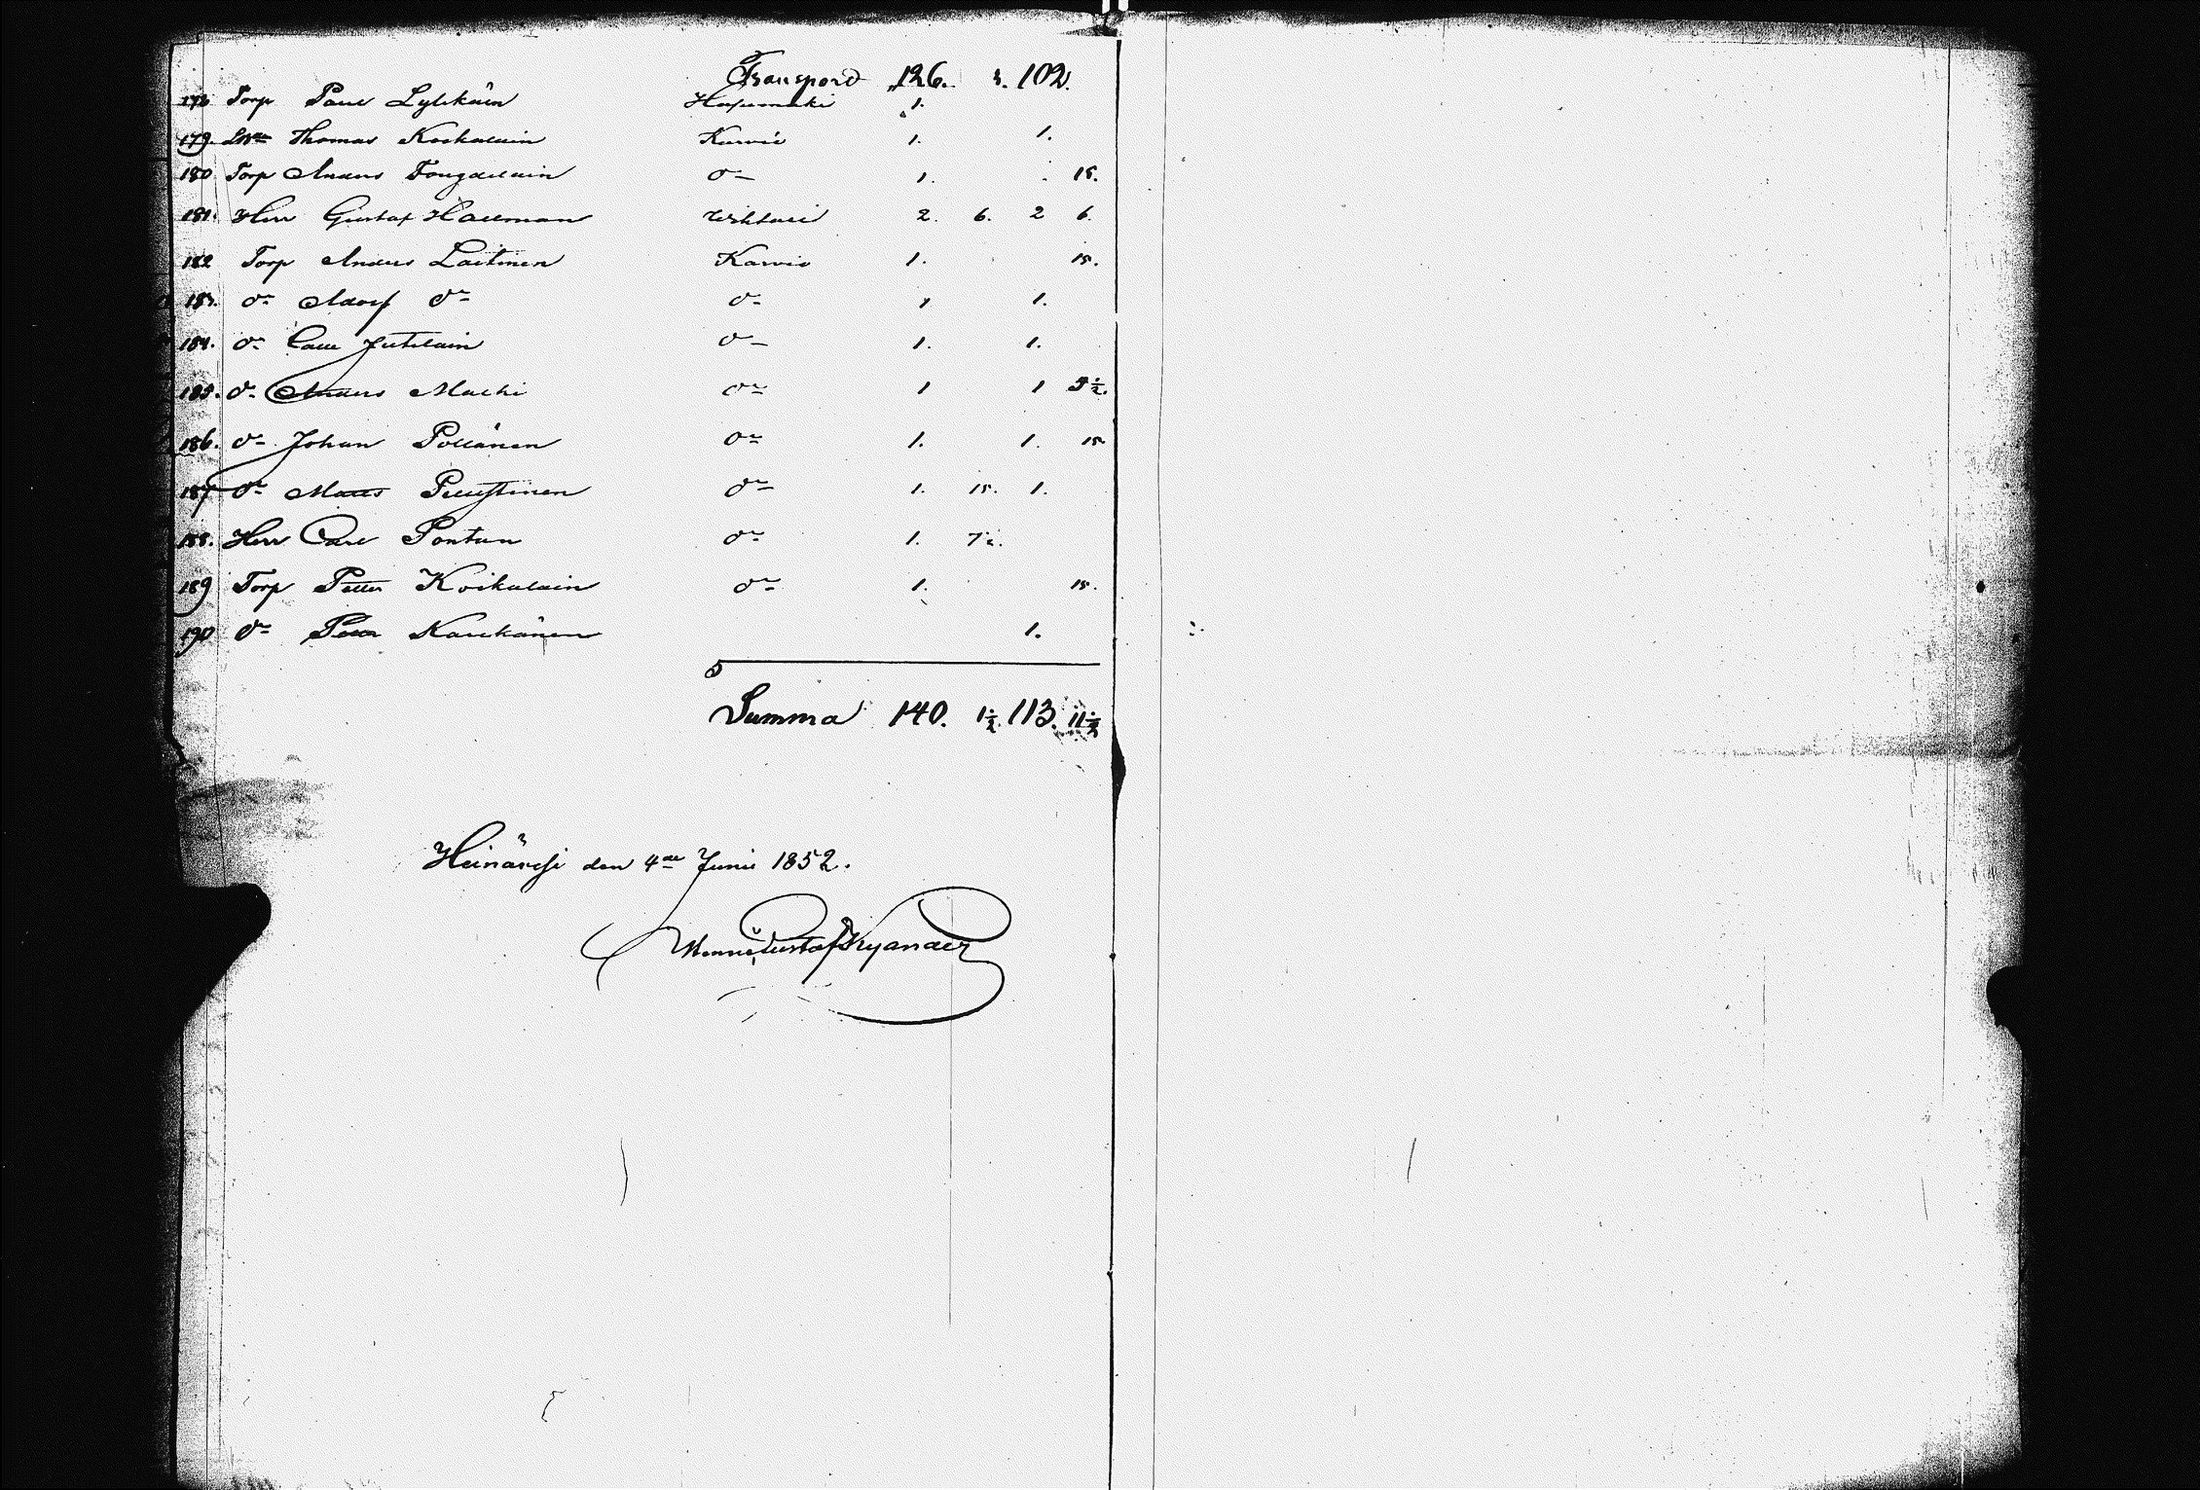 Transpord 126. 3. 102.
178 Torp Paul Lylykäin Hapamäki 1.
179. Thomas Koikalain Karvio 1. 1.
180 Torp Anders Fougdelain d:o 1. 15.
181. Herr Gustaf Hallman Wihtari 2. 6. 2 6.
182 Torp Anders Laitinen Karvio 1. 15.
183. d:o Adolf d:o d:o 1 1.
184. d:o Jutilain d:o 1. 1.
185. d:o Anders Machi d:o 1 1 5½.
186. d:o Johan Pöllänen d:o 1. 1. 15
187 d:o Matts Puustinen d:o 1. 15. 1.
188. Herr Carl Pontun d:o 1. 7½.
189 Torp Petter Koikalain d:o 1. 15.
190 d:o Petter Kaukänen 1.
Summa 140. 1½. 113. 11½
Heinävesi den 4de Junii 1852.
Gustaf Kyander